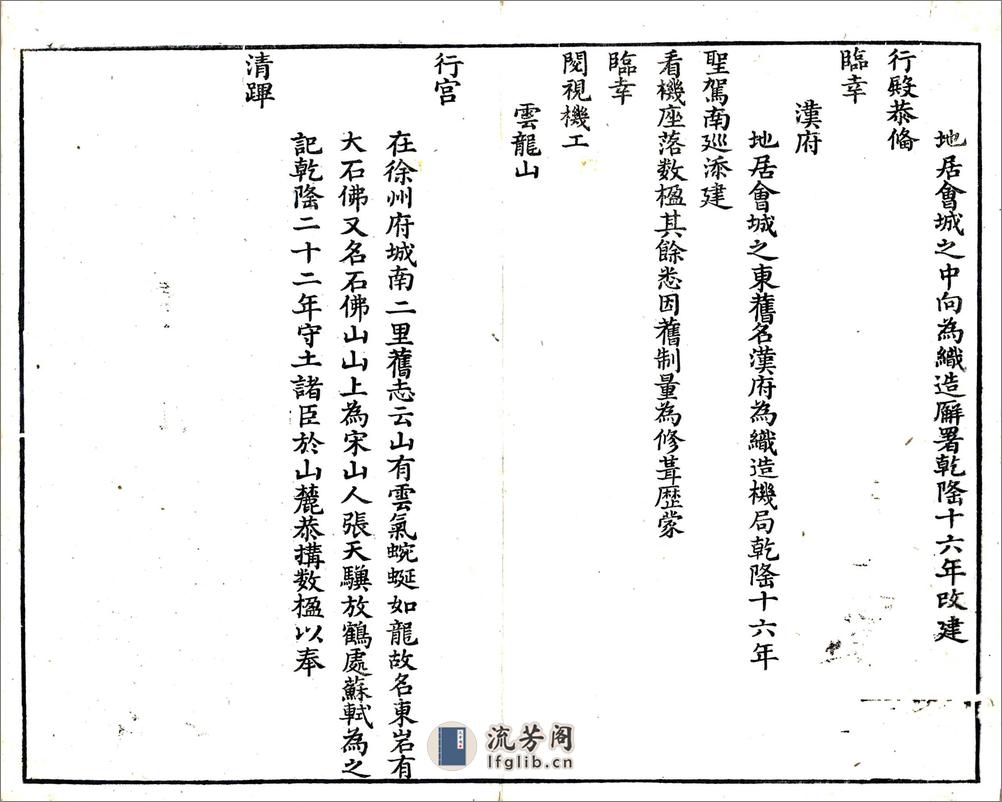 地居會城之中向為織造廨署乾隆十六年改建
行殿恭俻
臨幸
漢府
地居會城之東舊名漢府為織造機局乾隆十六年
聖駕南廵添建
看機座落数楹其餘悉因舊制量為修葺歷蒙
臨幸
閱視機工
雲龍山
行宫
在徐州府城南二里舊志云山有雲氣蜿蜒如龍故名東岩有
大石佛又名石佛山山上為宋山人張天驥放鶴處蘇軾為之
記乾隆二十二年守土諸臣於山麓恭搆数楹以奉
清蹕
流芳阁
lfglib.cn